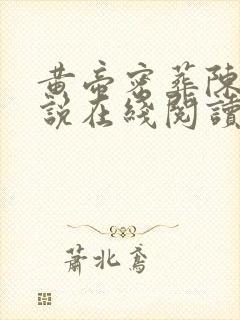 黄帝密葬陳
說在綫閱讀
蕭北鳶